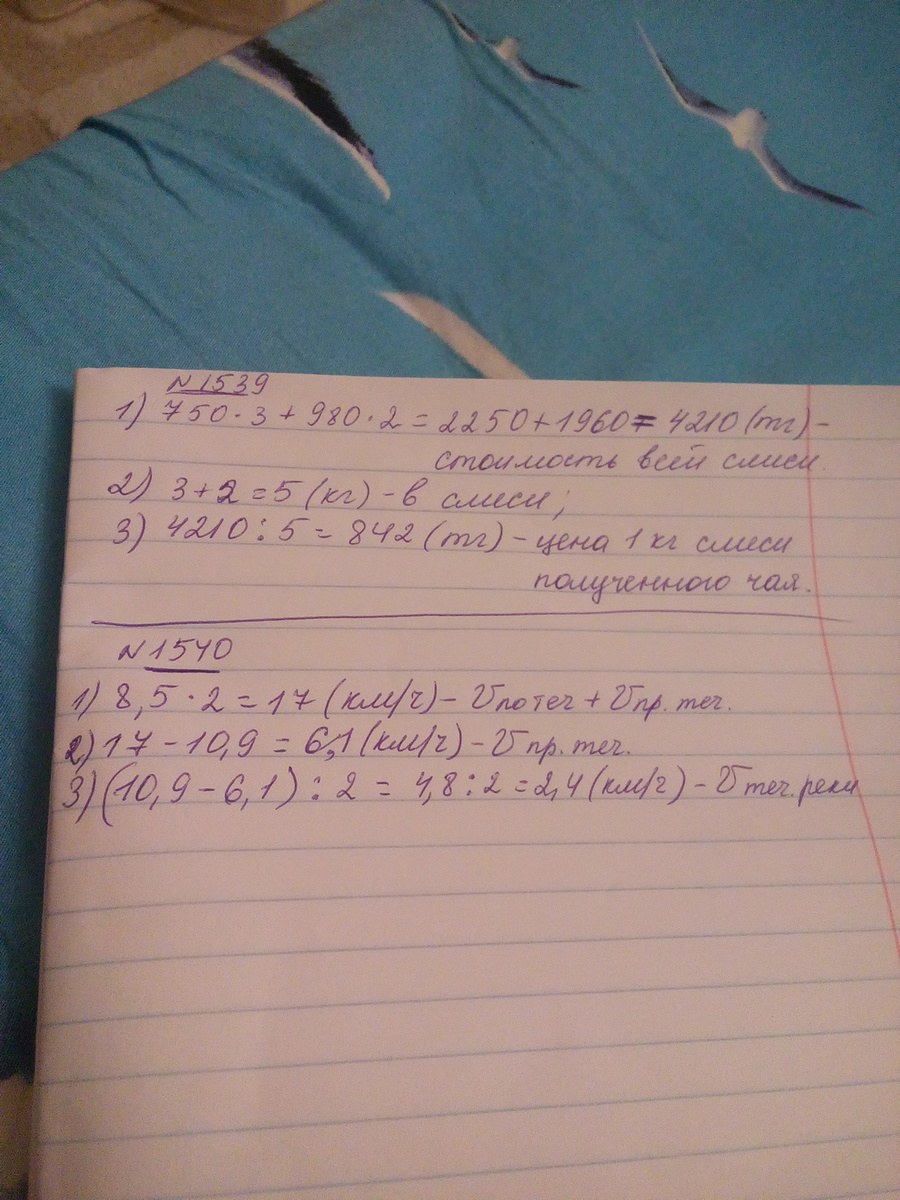 N 1539
1) 750 · 3 + 980 · 2 = 2250 + 1960 = 4210 (тг) -
стоимость всей смеси.
2) 3 + 2 = 5 (кг) - в смеси;
3) 4210 : 5 = 842 (тг) - цена 1 кг смеси
полученного чая.
N 1540
1) 8,5 · 2 = 17 (км/ч) - V по теч + V пр. теч.
2) 17 - 10,9 = 6,1 (км/ч) - V пр. теч.
3) (10,9 - 6,1) : 2 = 4,8 : 2 = 2,4 (км/ч) - V теч. реки